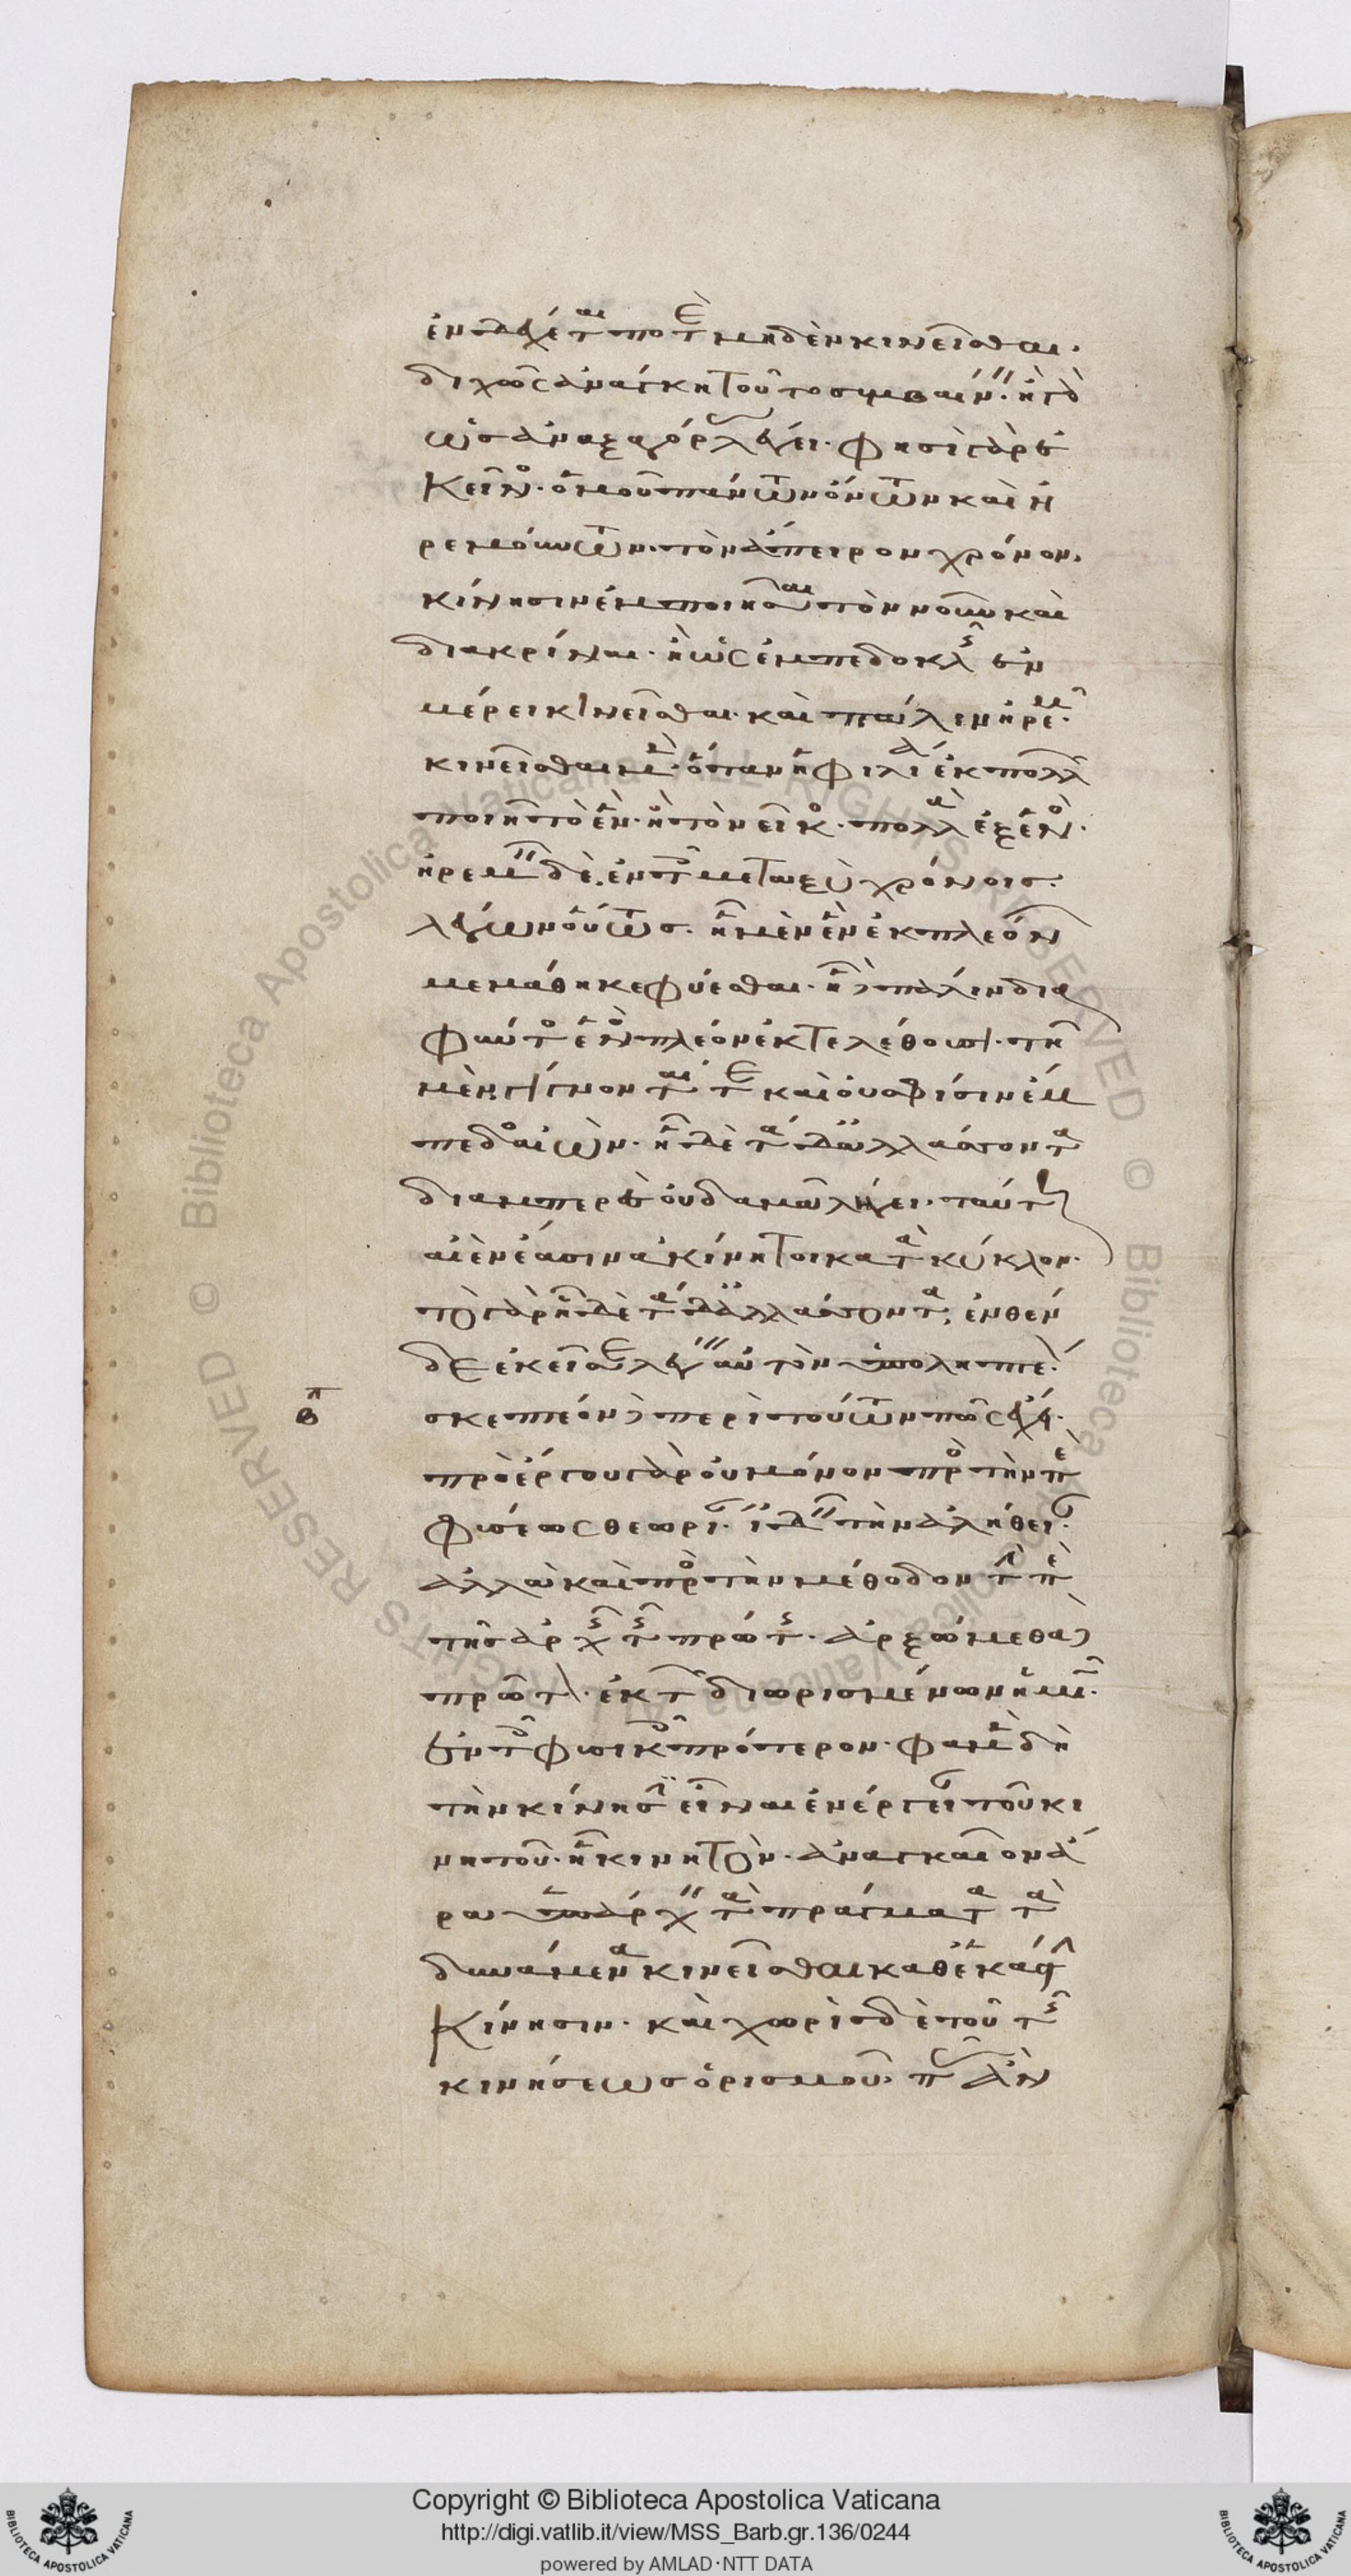 ἐνδέχεταί ποτε μηδὲν κινεῖσθαι·
διχῶς ἀνάγκη τοῦτο συμβαίνειν· ἢ γὰρ
ὡς ἀναξαγόρας λέγει· φησὶ γὰρ ἐ
κεῖνος· ὁμοῦ πάντων ὄντων καὶ ἠ
ρεμούντων τὸν ἄπειρον χρόνον,
κίνησιν ἐμποιῆσαι τὸν νοῦν καὶ
διακρίναι· ἢ ὡς ἐμπεδοκλῆς ἐν
μέρει κινεῖσθαι· καὶ πάλιν ἠρεμεῖν·
κινεῖσθαι μὲν· ὅταν ἡ φιλία ἐκ πολλῶν
ποιῆ τὸ ἕν· ἢ τὸ νεῖκος· πολλὰ ἐξ ἑνὸς·
ἠρεμεῖν δὲ ἐν τοῖς μεταξὺ χρόνοις.
λέγων οὕτως· ἢ μὲν ἓν ἐκ πλεόνων
μεμάθηκε φύεσθαι· ἢ δὲ πάλιν δια
φύντος ἑνὸς πλέον ἐκτελέθουσι· τῆ
μὲν γίγνονταί τε καὶ οὔ σφισιν ἔμ
πεδος αἰὼν· ἢ δὲ τάδ' ἀλλάσσοντα
διαμπερὲς οὐδαμῶς λήγει· ταύτη
αἰὲν ἔασιν ἀκίνητοι κατὰ κύκλον·
τὸ γὰρ ἢ δὲ τάδ' ἀλλάσσοντα, ἐνθέν
δε ἐκεῖσε λέγειν αὐτὸν ὑποληπτέον·
σκεπτέον δὴ περὶ τούτων πῶς ἔχει·
πρὸ ἔργου γὰρ οὐ μόνον πρὸς τὴν περὶ
φύσεως θεωρίαν ἰδεῖν τὴν ἀλήθειαν·
ἀλλὰ καὶ πρὸς τὴν μέθοδον τὴν περὶ
τῆς ἀρχῆς τῆς πρώτης· ἀρξώμεθα δὲ
πρῶτον· ἐκ τῶν διωρισμένων ἡμῖν·
ἐν τοῖς φυσικοῖς πρότερον· φαμὲν δὴ
τὴν κίνησιν εἶναι ἐνέργειαν τοῦ κι
νητοῦ· ἧ κινητὸν· ἀναγκαῖον ἄ
ρα ὑπάρχειν τὰ πράγματα τὰ
δυνάμενα κινεῖσθαι καθ' ἑκάστην
κίνησιν· καὶ χωρὶς δὲ τοῦ τῆς
κινήσεως ὁρισμοῦ· πᾶς ἂν